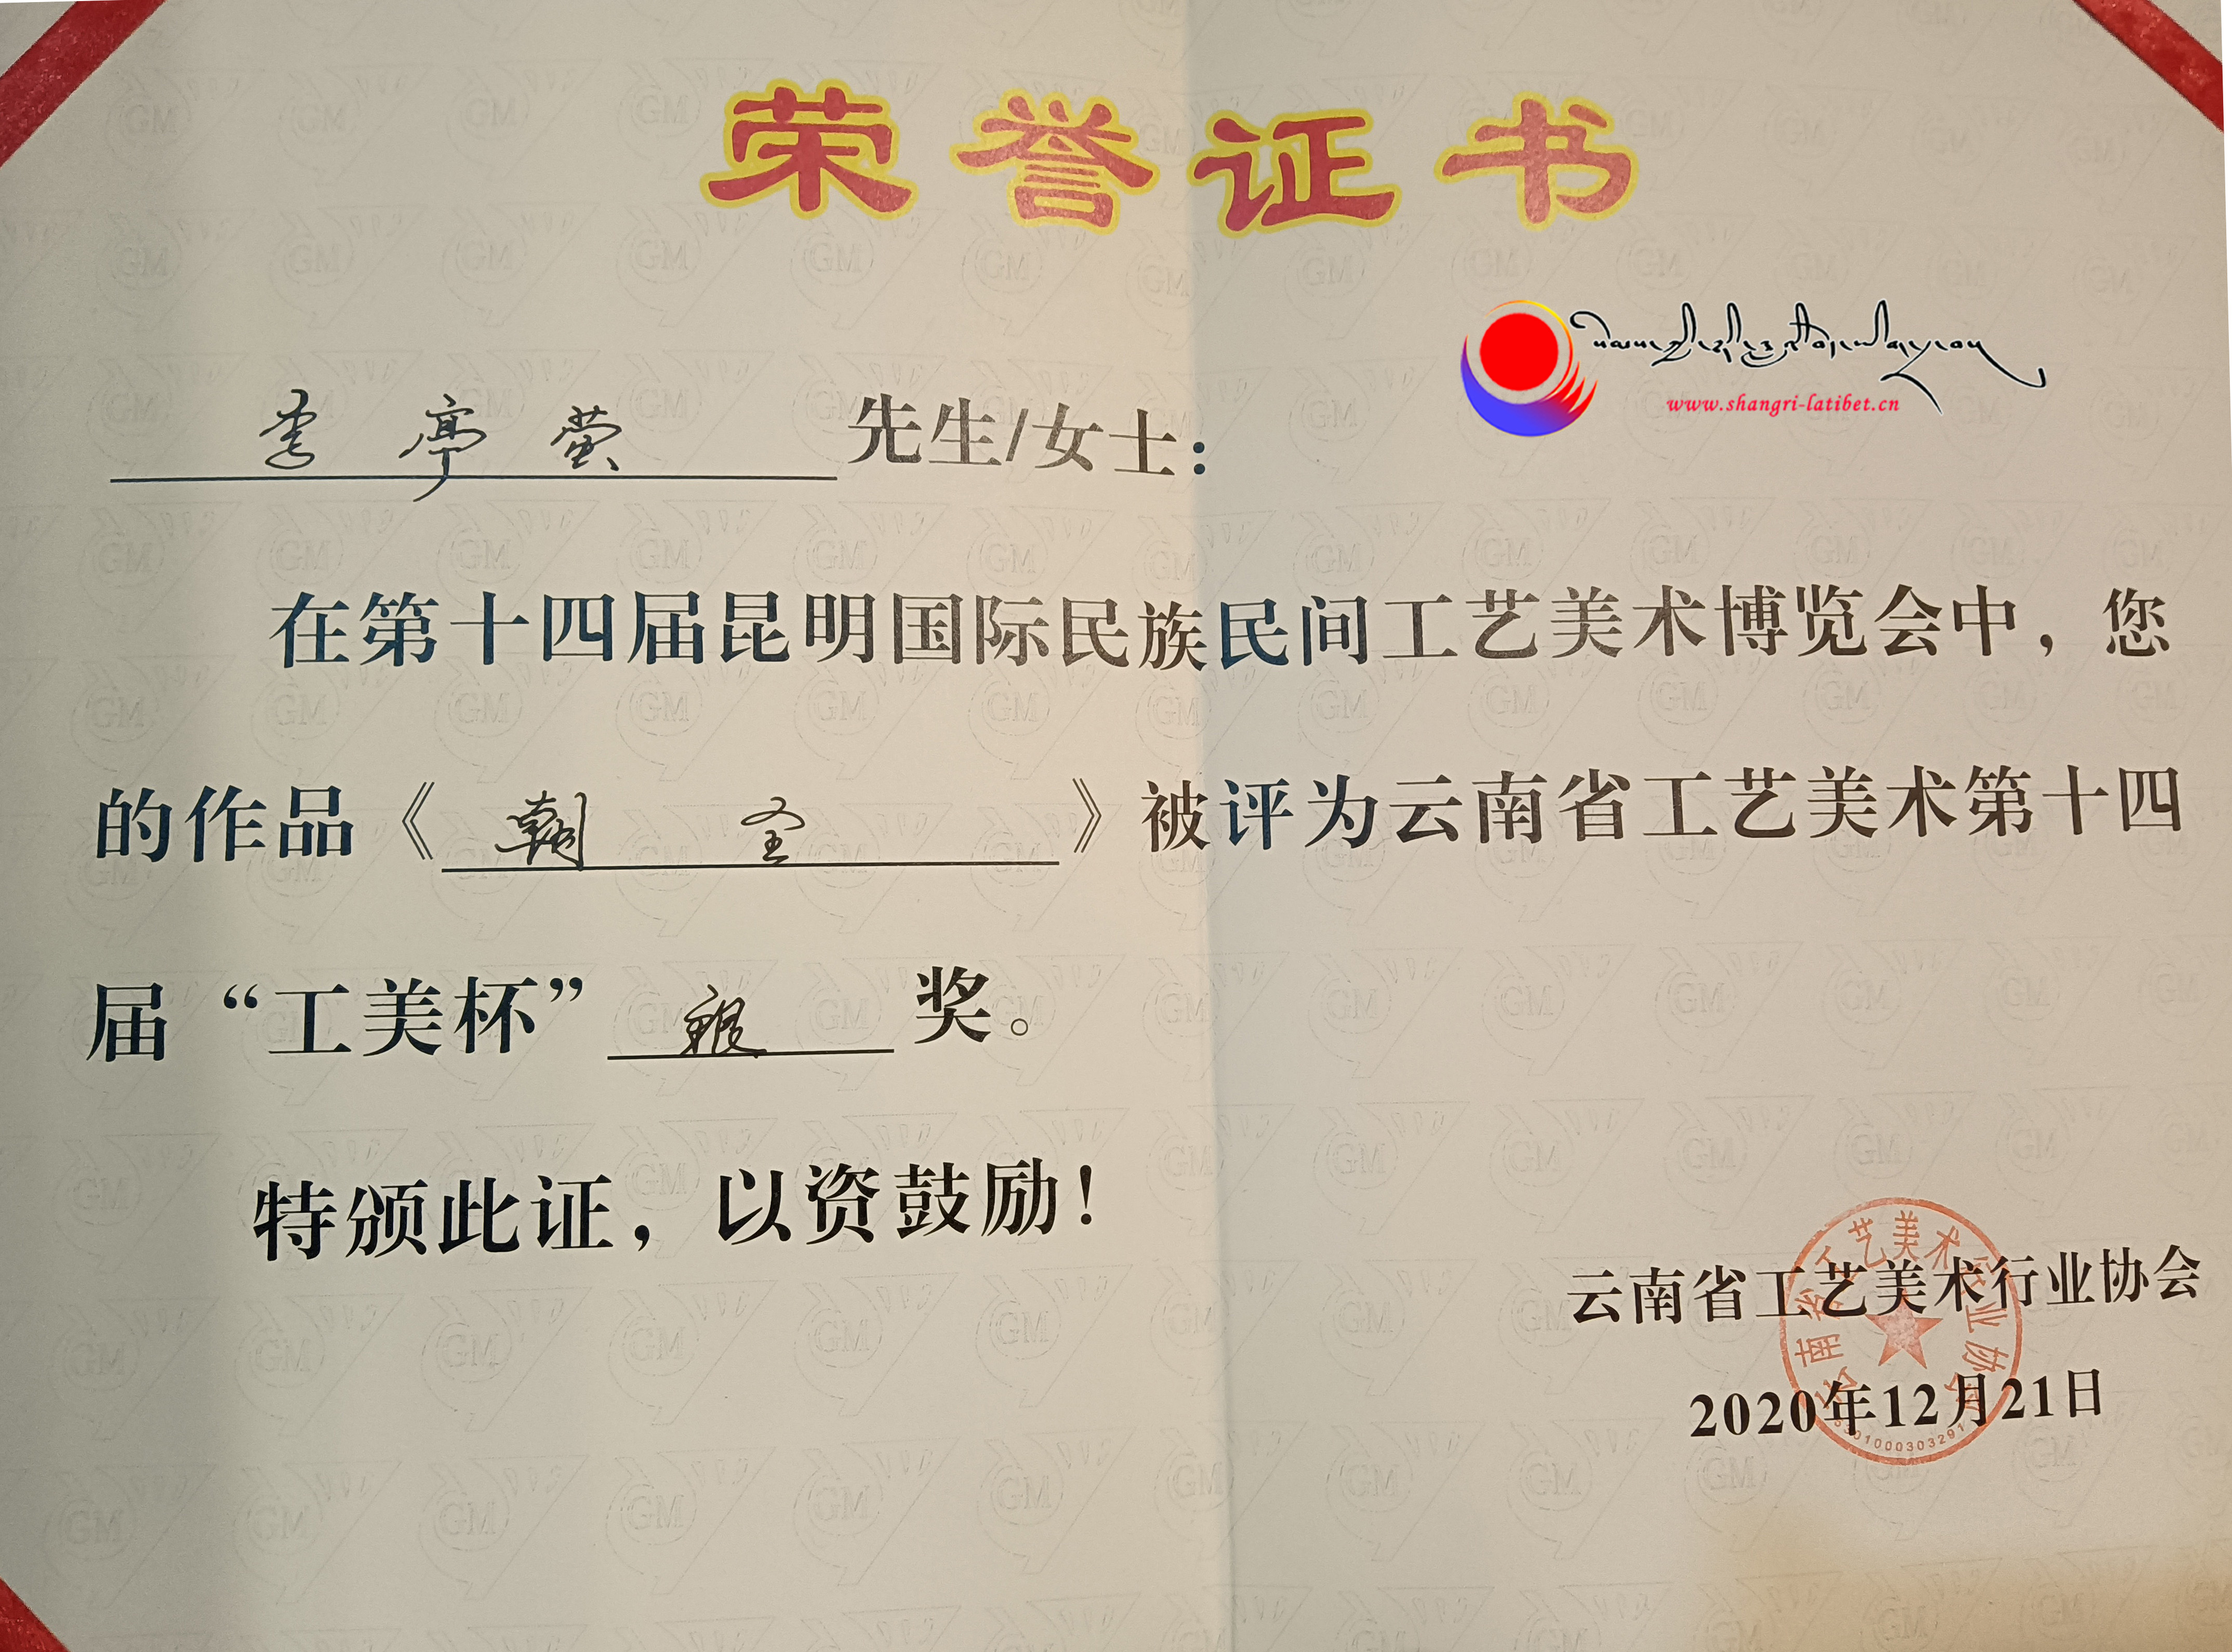 荣誉证书
www.shangri-latibet.cn
李亭萤 先生/女士：
在第十四届昆明国际民族民间工艺美术博览会中，您
的作品《朝圣》被评为云南省工艺美术第十四
届“工美杯”银奖。
特颁此证，以资鼓励！
云南省工艺美术行业协会
2020年12月21日